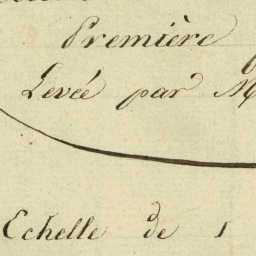 Première
Levée par M
Echelle de 1